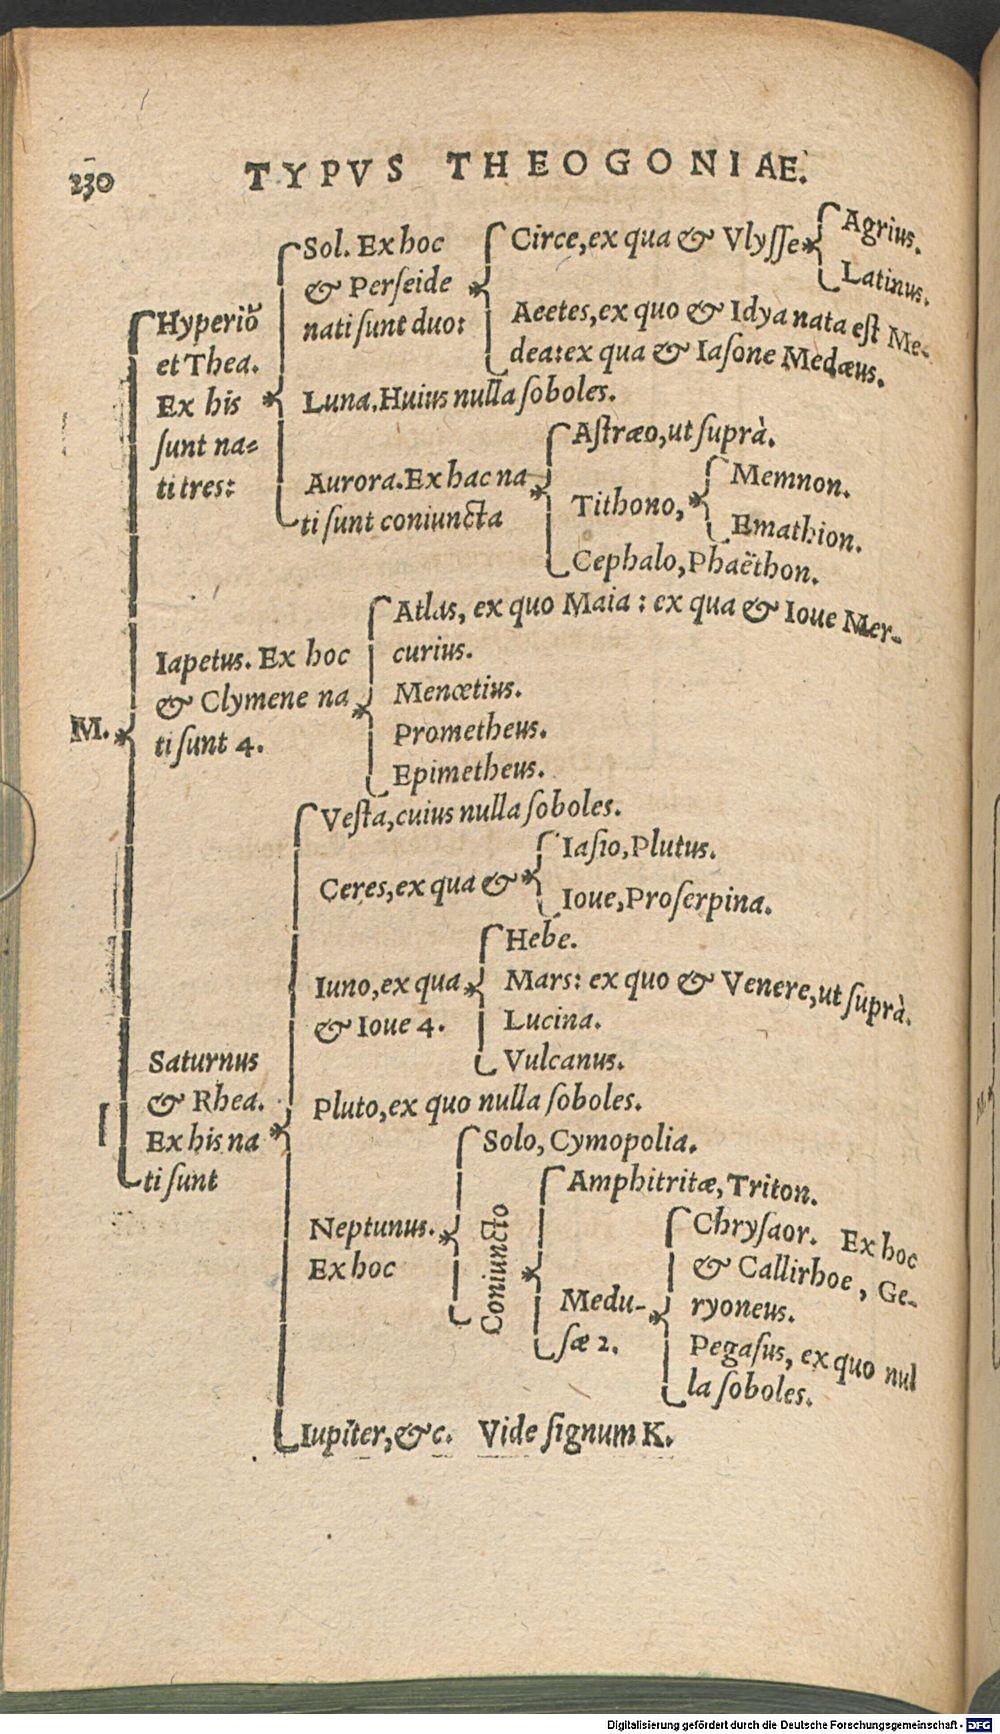 230
TYPVS THEOGONIAE.
M.
Hyperiõ
et Thea.
Ex his
sunt na=
ti tres:
Sol. Ex hoc
& Perseide
nati sunt duo:
Circe, ex qua & Vlysse
Agrius.
Latinus.
Aeetes, ex quo & Idya nata est Me-
dea: ex qua & Iasone Medæus.
Luna. Huius nulla soboles.
Aurora. Ex hac na
ti sunt coniuncta
Astræo, ut suprà.
Tithono,
Memnon.
Emathion.
Cephalo, Phaëthon.
Iapetus. Ex hoc
& Clymene na
ti sunt 4.
Atlas, ex quo Maia : ex qua & Ioue Mer-
curius.
Menœtius.
Prometheus.
Epimetheus.
Saturnus
& Rhea.
Ex his na
ti sunt
Vesta, cuius nulla soboles.
Ceres, ex qua &
Iasio, Plutus.
Ioue, Proserpina.
Iuno, ex qua
& Ioue 4.
Hebe.
Mars: ex quo & Venere, ut suprà.
Lucina.
Vulcanus.
Pluto, ex quo nulla soboles.
Neptunus.
Ex hoc
Solo, Cymopolia.
Coniuncto
Amphitritæ, Triton.
Medu-
sæ 2.
Chrysaor. Ex hoc
& Callirhoe, Ge-
ryoneus.
Pegasus, ex quo nul
la soboles.
Iupiter, &c. Vide signum K.
Digitalisierung gefördert durch die Deutsche Forschungsgemeinschaft - DFG